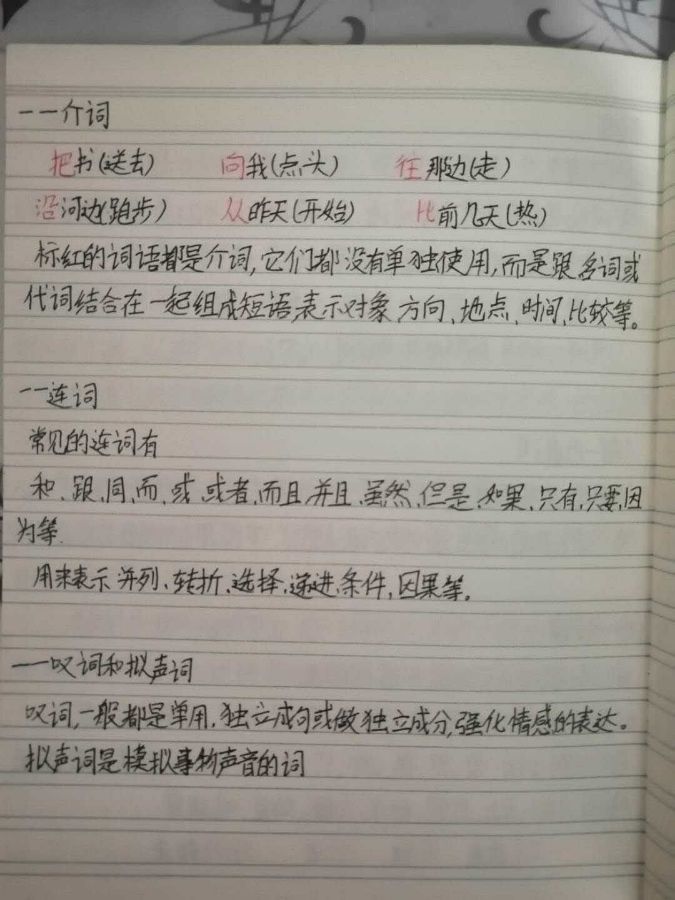 一一介词
把书(送去) 向我(点头) 往那边(走)
沿河边(跑步) 从昨天(开始) 比前几天(热)
标红的词语都是介词,它们都没有单独使用,而是跟名词或
代词结合在一起组成短语,表示对象、方向、地点、时间、比较等。
一一连词
常见的连词有
和、跟、同、而、或、或者、而且、并且、虽然、但是、如果、只有、只要、因
为等.
用来表示并列、转折、选择、递进、条件、因果等。
一一叹词和拟声词
叹词,一般都是单用,独立成句或做独立成分,强化情感的表达。
拟声词是模拟事物声音的词